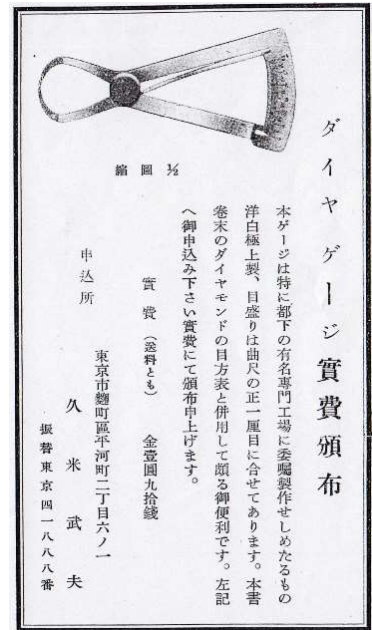 ダイヤゲージ實費頒布
本ゲージは特に都下の有名專門工場に委囑製作せしめたるもの
洋白極上製、目盛りは曲尺の正一厘目に合せてあります。本書
卷末のダイヤモンドの目方表と併用して頗る御便利です。左記
へ御申込み下さい實費にて頒布申上げます。
½ 圖縮
實費(送料とも) 金壹圓九拾錢
申込所
東京市麴町區平河町二丁目六ノ一
久米武夫
振替東京四一八八八番